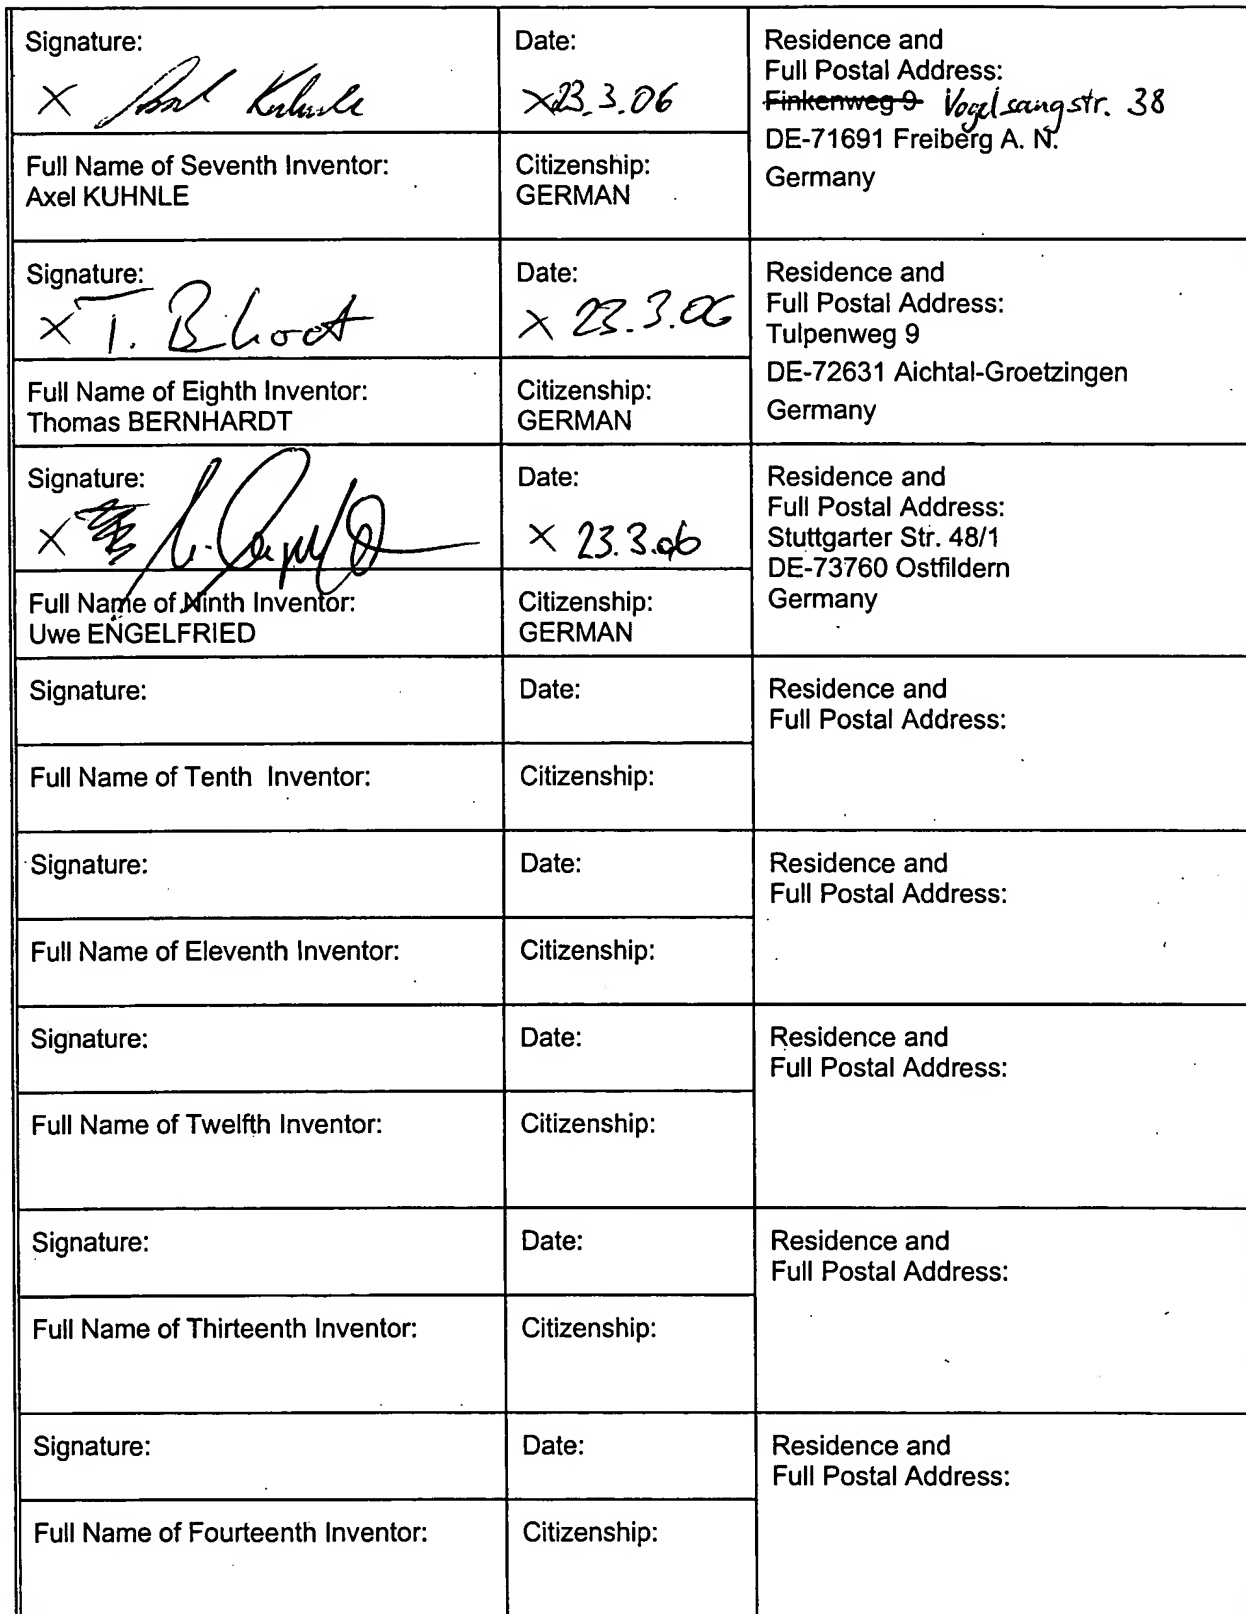 Signature:
X Axel Kuhnle
Date:
X 23.3.06
Residence and
Full Postal Address:
Finkenweg 9 Vogelsangstr. 38
DE-71691 Freiberg A. N.
Germany
Full Name of Seventh Inventor:
Axel KUHNLE
Citizenship:
GERMAN
Signature:
X T. B
Date:
X 23.3.06
Residence and
Full Postal Address:
Tulpenweg 9
DE-72631 Aichtal-Groetzingen
Germany
Full Name of Eighth Inventor:
Thomas BERNHARDT
Citizenship:
GERMAN
Signature:
X
Date:
X 23.3.06
Residence and
Full Postal Address:
Stuttgarter Str. 48/1
DE-73760 Ostfildern
Germany
Full Name of Ninth Inventor:
Uwe ENGELFRIED
Citizenship:
GERMAN
Signature:
Date:
Residence and
Full Postal Address:
Full Name of Tenth Inventor:
Citizenship:
Signature:
Date:
Residence and
Full Postal Address:
Full Name of Eleventh Inventor:
Citizenship:
Signature:
Date:
Residence and
Full Postal Address:
Full Name of Twelfth Inventor:
Citizenship:
Signature:
Date:
Residence and
Full Postal Address:
Full Name of Thirteenth Inventor:
Citizenship:
Signature:
Date:
Residence and
Full Postal Address:
Full Name of Fourteenth Inventor:
Citizenship: